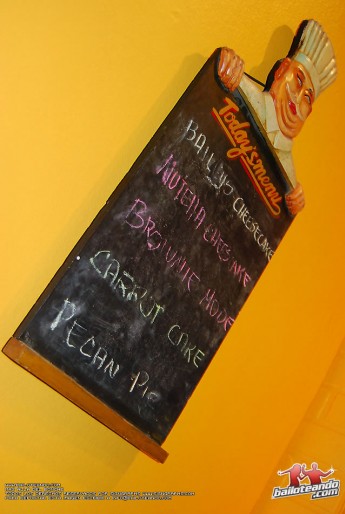 Today's menu
BAILYS CHEESECAKE
NUTELLA CHEESECAKE
BROWNIE MODE
CARROT CAKE
PECAN PIE
bailoteando.com